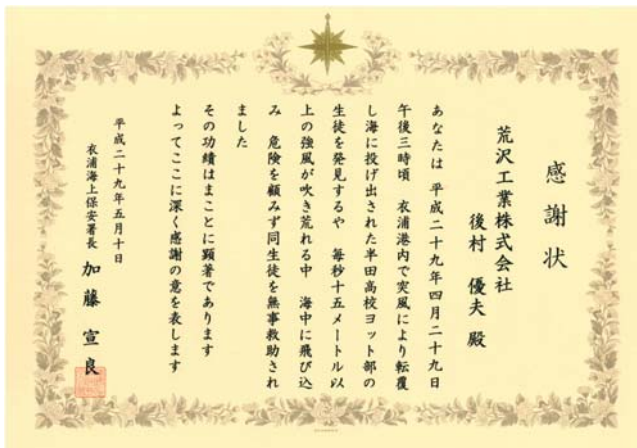 感謝状
荒沢工業株式会社
後村 優夫 殿
あなたは 平成二十九年四月二十九日
午後三時頃 衣浦港内で突風により転覆
し海に投げ出された半田高校ヨット部の
生徒を発見するや 毎秒十五メートル以
上の強風が吹き荒れる中 海中に飛び込
み 危険を顧みず同生徒を無事救助され
ました
その功績はまことに顕著であります
よってここに深く感謝の意を表します
平成二十九年五月十日
衣浦海上保安署長 加藤 宣良